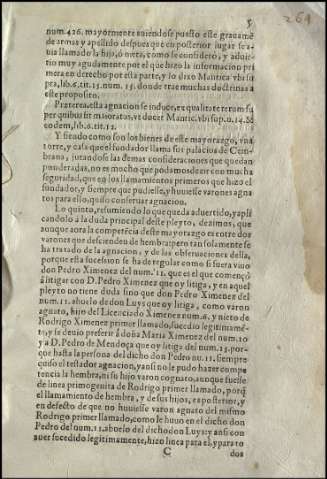 5
264
num.426. mayormente auiendose puesto este grauamẽ
de armas y apellido despues que en posterior lugar se a-
uia llamado la hija, ò nieta, como se consideró, y aduir-
tio muy agudamente por el que hizo la informacion pri
mera en derecho por esta parte, y lo dixo Mantica vbi su
pra, lib.6.tit.15.num.15. donde trae muchas doctrinas a
este proposito.
Præterea, esta agnacion se induce, ex qualitate rerum su
per quibus fit maioratus, vt docet Mantic. vbi sup. n.14. &
eodem, lib.6.tit.12.
Y siendo como son los bienes de este mayorazgo, vna
torre, y casa que el fundador llama sus palacios de Cem-
brana, juntandose las demas consideraciones que quedan
ponderadas, no es mucho que podamos dezir con mucha
seguridad, que en los llamamientos primeros que hizo el
fundador, y siempre que pudiesse, y huuiesse varones agna
tos para ello, quiso conseruar agnacion.
Lo quinto, resumiendo lo que queda aduertido, y apli
candolo à la duda principal deste pleyto, dezimos, que
aunque aora la competẽcia deste mayorazgo es entre dos
varones que descienden de hembra, pero tan solamente se
ha tratado de la agnacion, y de las obseruaciones della,
porque esta sucession se ha de regular como si fuera viuo
don Pedro Ximenez del num.12. que es el que començò
â litigar con D. Pedro Ximenez que oy litiga, y en aquel
pleyto no tiene duda sino que don Pedro Ximenez del
num.11. abuelo de don Luys que oy litiga, como varon
agnato, hijo del Licenciado Ximenez num.6. y nieto de
Rodrigo Ximenez primer llamado, sucedio legitimamẽ-
te, y se deuio preferir â doña Maria Ximenez del num.10
y a D. Pedro de Mendoça que oy litiga del num.13. por-
que hasta la persona del dicho don Pedro nu.11. siempre
quiso el testador agnacion, y ansi no le pudo hazer compe
tencia la hembra, ni su hijo varon cognato, aunque fuesse
de linea primogenita de Rodrigo primer llamado, porq̃
el llamamiento de hembra, y de sus hijos, es posterior, y
en defecto de que no huuiesse varon agnato del mismo
Rodrigo primer llamado, como le huuo en el dicho don
Pedro del num.11. abuelo del dicho don Luys: y ansi con
auer sucedido legitimamente, hizo linea para el, y para to
C
dos